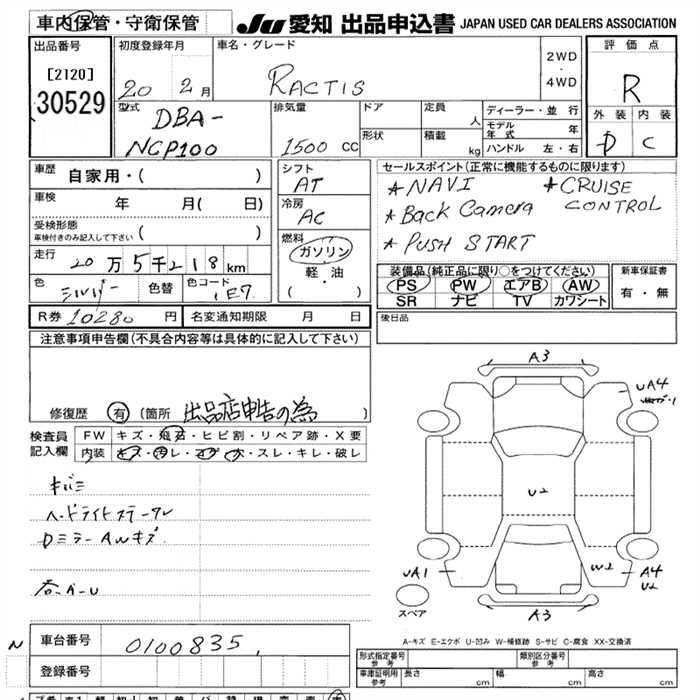 車内保管・守衛保管 JU 愛知 出品申込書 JAPAN USED CAR DEALERS ASSOCIATION
出品番号
[2120]
30529
初度登録年月
20 年 2 月
車名・グレード
RACTIS
2WD
・
4WD
評価点
R
外装 内装
D C
型式
DBA-
NCP100
排気量
1500 cc
ドア
形状
定員 人
積載 kg
ディーラー・並行
モデル年式 年
ハンドル 左・右
車歴
自家用・( )
車検
年 月( 日)
受検形態
車検付きのみ記入して下さい ( )
走行
20万5千218km
色
シルバー
色替
色コード
1E7
シフト
AT
冷房
AC
燃料
ガソリン
・
軽・油
( )
セールスポイント(正常に機能するものに限ります)
★NAVI ★CRUISE CONTROL
★Back Camera
★PUSH START
装備品(純正品に限り○をつけてください)
PS PW エアB AW
SR ナビ TV カワシート
新車保証書
有・無
R券 10280 円 名変通知期限 月 日
後日品
注意事項申告欄(不具合内容等は具体的に記入して下さい)
修復歴 有 (箇所 出品店申告の為 )
検査員
記入欄
FW キズ・飛石・ヒビ割・リペア跡・X要
内装 キズ・汚レ・コゲ・穴・スレ・キレ・破レ
ヘッドライトステークレ
DミラーAWキズ
A3
UA4
U2
W2
UA1
A4
U2
A3
スペア
A-キズ E-エクボ U-凹み W-補修跡 S-サビ C-腐食 XX-交換済
N
車台番号
0100835
登録番号
形式指定番号
参考
類別区分番号
参考
車庫証明用
参考
長さ cm 幅 cm 高さ cm